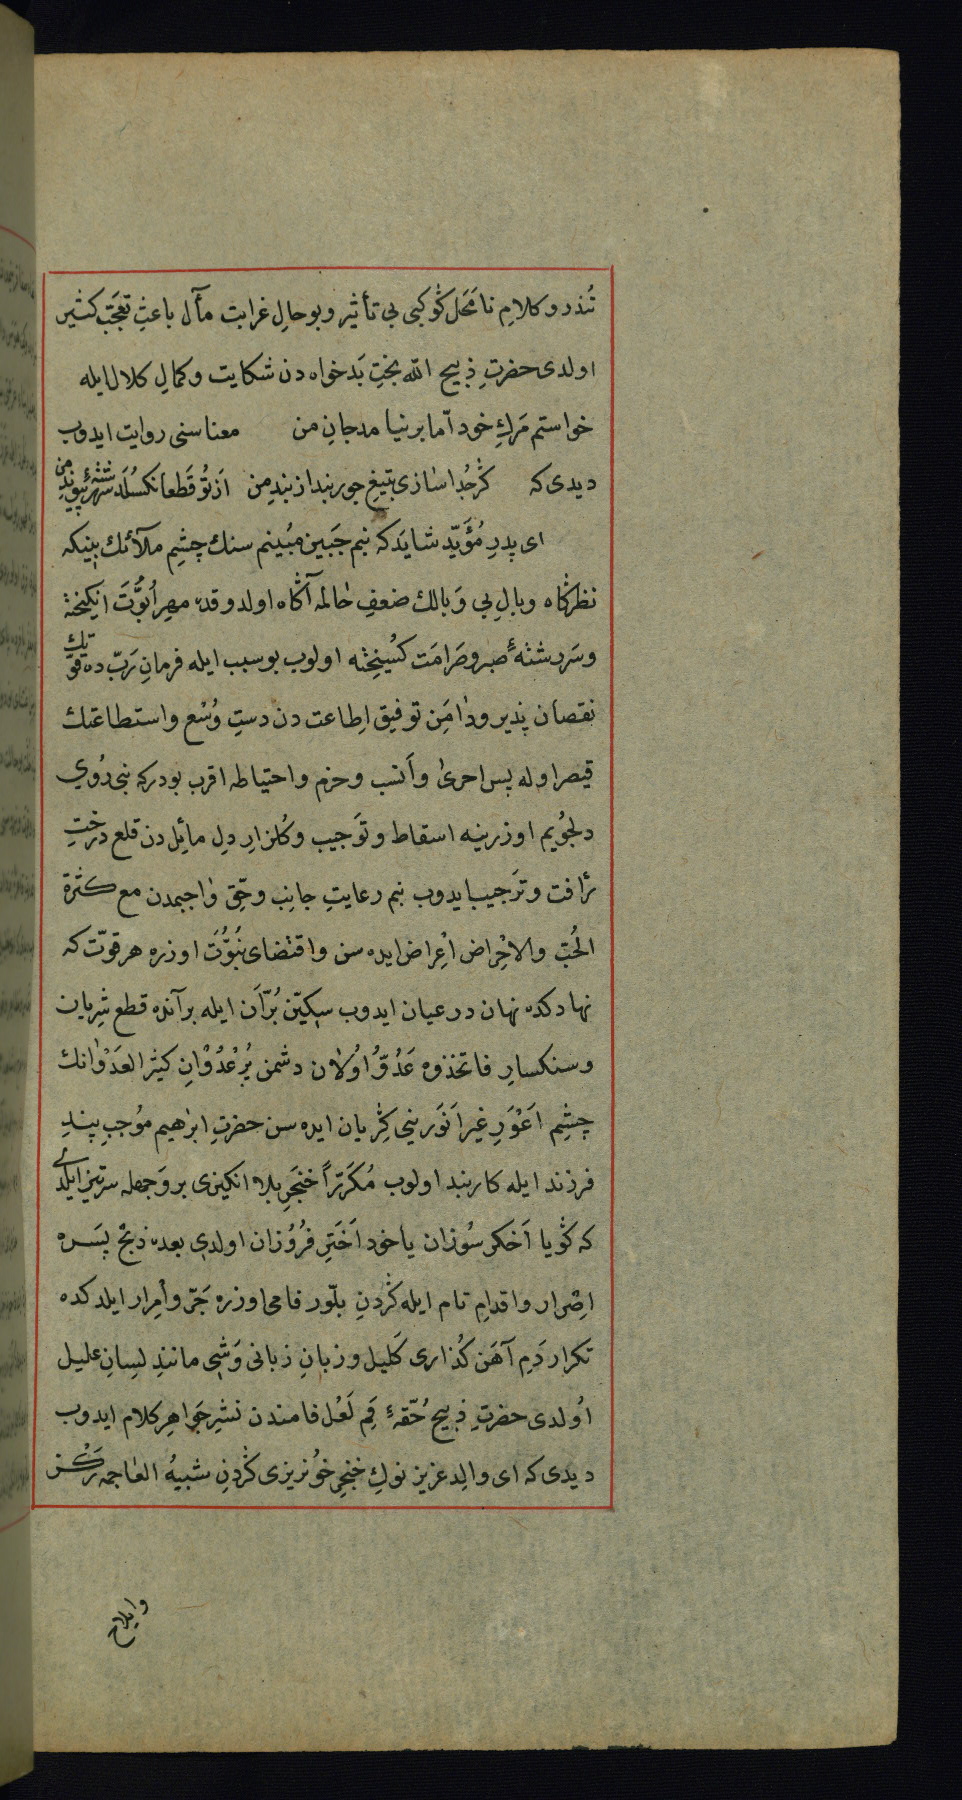 تُندر و كلامِ نامَحَل كوكبى بى تأثير و بو حالِ غرابت مآل باعثِ تعجّبِ كثير
اولدى حضرتِ ذبيح الله بختِ بَدخواه دن شكايت و كمالِ كلال ايله
خواستم مَركِ خود امّا برنيامد جانِ من معناسنى روايت ايدوب
ديدى كه كر جُدا سازى بتيغِ جور بند از بندِ من از تُو قطعا نكسلد سررشتهٔ پيوندِ من
اى پدرِ مُؤيّد شايد كه بنم جَبينِ مُبينم سنك چشمِ ملائك بينيكه
نظركاه و بالِ بى وَبالك ضعفِ حالمه آكاه اولدوقده مهرِ اُبُوَّتَ انكيخته
و سَررشتهٔ صبر و صَرامَت كسيخته اولوب بو سبب ايله فرمانِ رَبّ ده قوّتك
نقصان پذير و دامَنِ توفيقِ اِطاعت دن دستِ وُسْع و استطاعتك
قصير اوله پس احرى و اَنسب و حزم و احتياطه اقرب بودركه بنى رُوى
دلجُويم اوزرينه اسقاط و توجيب و كُلزارِ دلِ مائِل دن قلع درختِ
رأفت و ترجيب ايدوب بنم رعايتِ جانِب و حقِّ واجبمدن مع كثرة
الحُبّ والاخراض اعراض ايده سن و اقتضاى نُبوّت اوزره هر قوّت كه
نهادكده نهان در عيان ايدوب سكّينِ بُرّان ايله بر آنده قطع شريان
و سنكسارِ فاتخذوه عَدُوّاً اُولان دشمنِ پُر عُدْوانِ كثير العَدْوانك
چشمِ اَعْوَرِ غير اَنوَرينى كِريان ايده سن حضرتِ ابرهيم مُوجبِ پندِ
فرزند ايله كاربند اولوب مُكَرّراً خنجرِ بلا انكيزى بر وَجهله سرتيز ايلدى
كه كويا اَخكرِ سُوزان ياخود اَخترِ فُرُوزان اولدى بعده ذبحِ پَسَره
اصرار و اقدامِ تام ايله كردنِ بلّور فامى اوزره جَرّ و اِمرار ايلدكده
تكرار دَمِ آهَن كُذارى كَليل و زبانِ زبانى وَشى مانندِ لسانِ عليل
اُولدى حضرتِ ذبيح حُقّهٔ فمِ لَعْل فامندن نشرِ جواهرِ كلام ايدوب
ديدى كه اى والدِ عزيز نوكِ خنجرِ خُونريزى كردنِ شبيهُ العاجمه ركز
و ايلاج